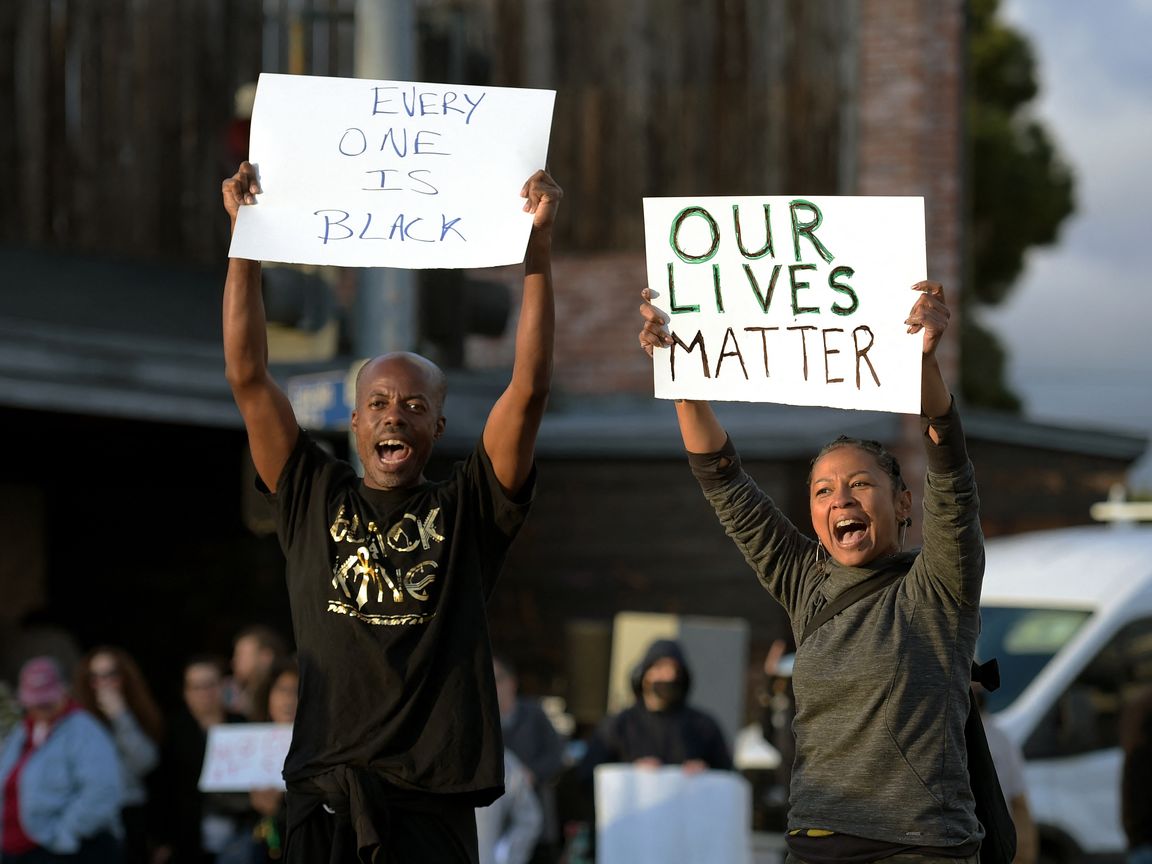 EVERY
ONE
IS
BLACK
OUR
LIVES
MATTER
BLACK
KING